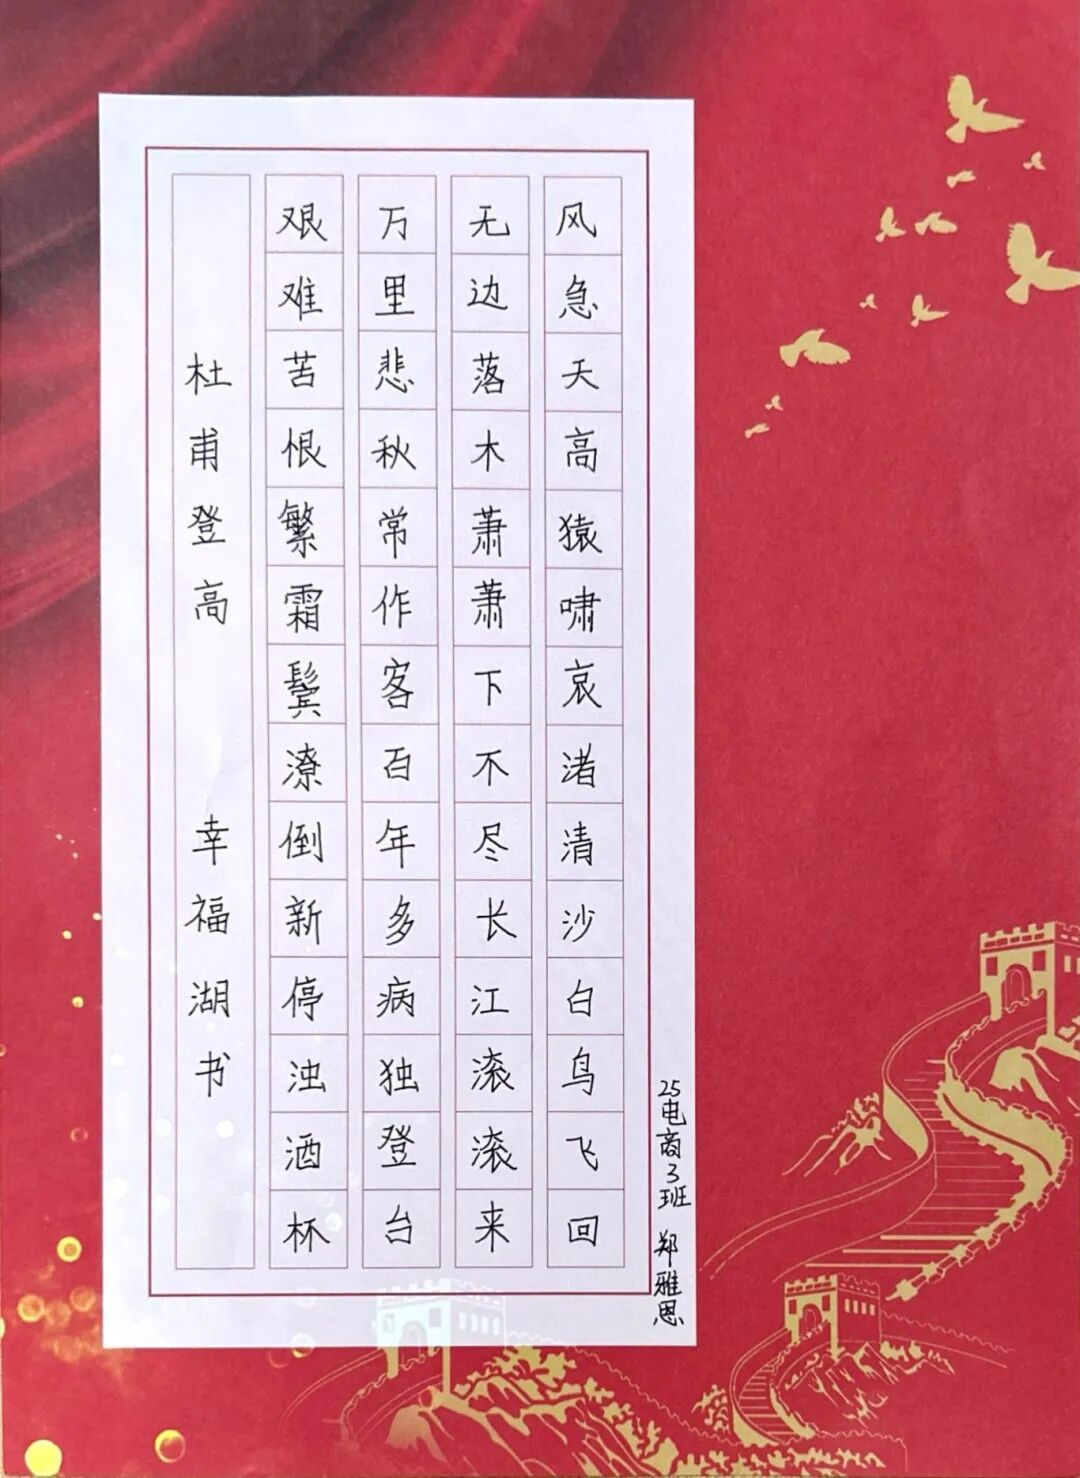 风急天高猿啸哀渚清沙白鸟飞回
无边落木萧萧下不尽长江滚滚来
万里悲秋常作客百年多病独登台
艰难苦恨繁霜鬓潦倒新停浊酒杯
杜甫登高 幸福湖书
25电商3班 郑雅恩